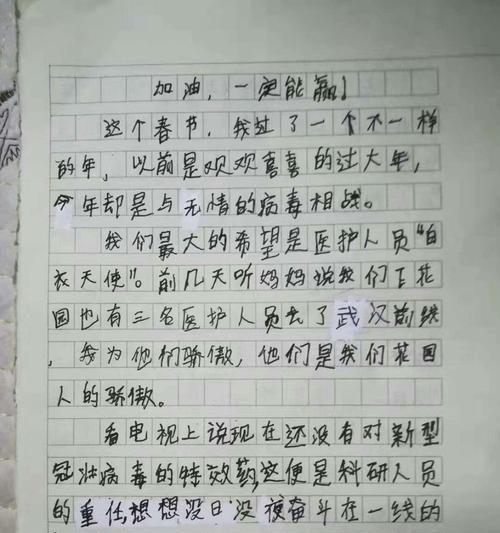 加油，一定能赢！
这个春节，我过了一个不一样
的年，以前是欢欢喜喜的过大年，
今年却是与无情的病毒相战。
我们最大的希望是医护人员“白
衣天使”。前几天听妈妈说我们丁花
园也有三名医护人员去了武汉前线
，我为他们骄傲，他们是我们花园
人的骄傲。
看电视上说现在还没有对新型
冠状病毒的特效药，这便是科研人员
的重任，想想没日没夜奋斗在一线的